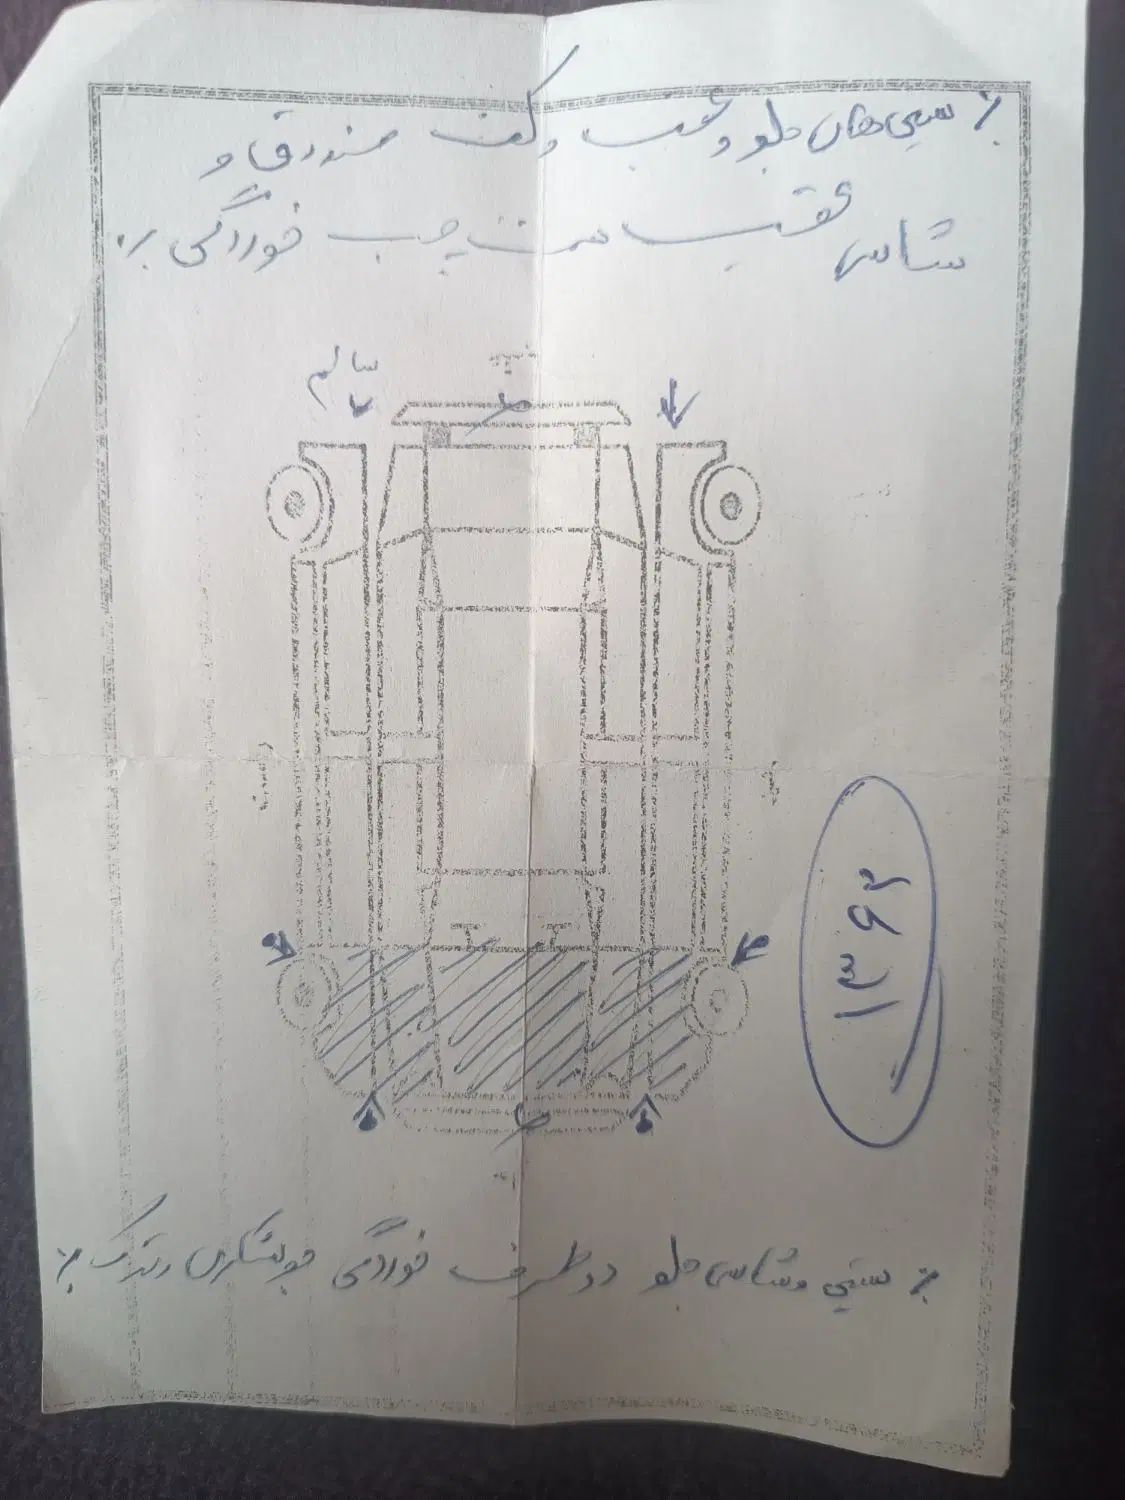 ٪ سینی های جلو و عقب و کف صندوق و
شاسی عقب سمت چپ خوردگی ٪
سالم
۱۳۹۲
٪ سینی و شاسی جلو دو طرف خوردگی جوشکاری رنگ ٪